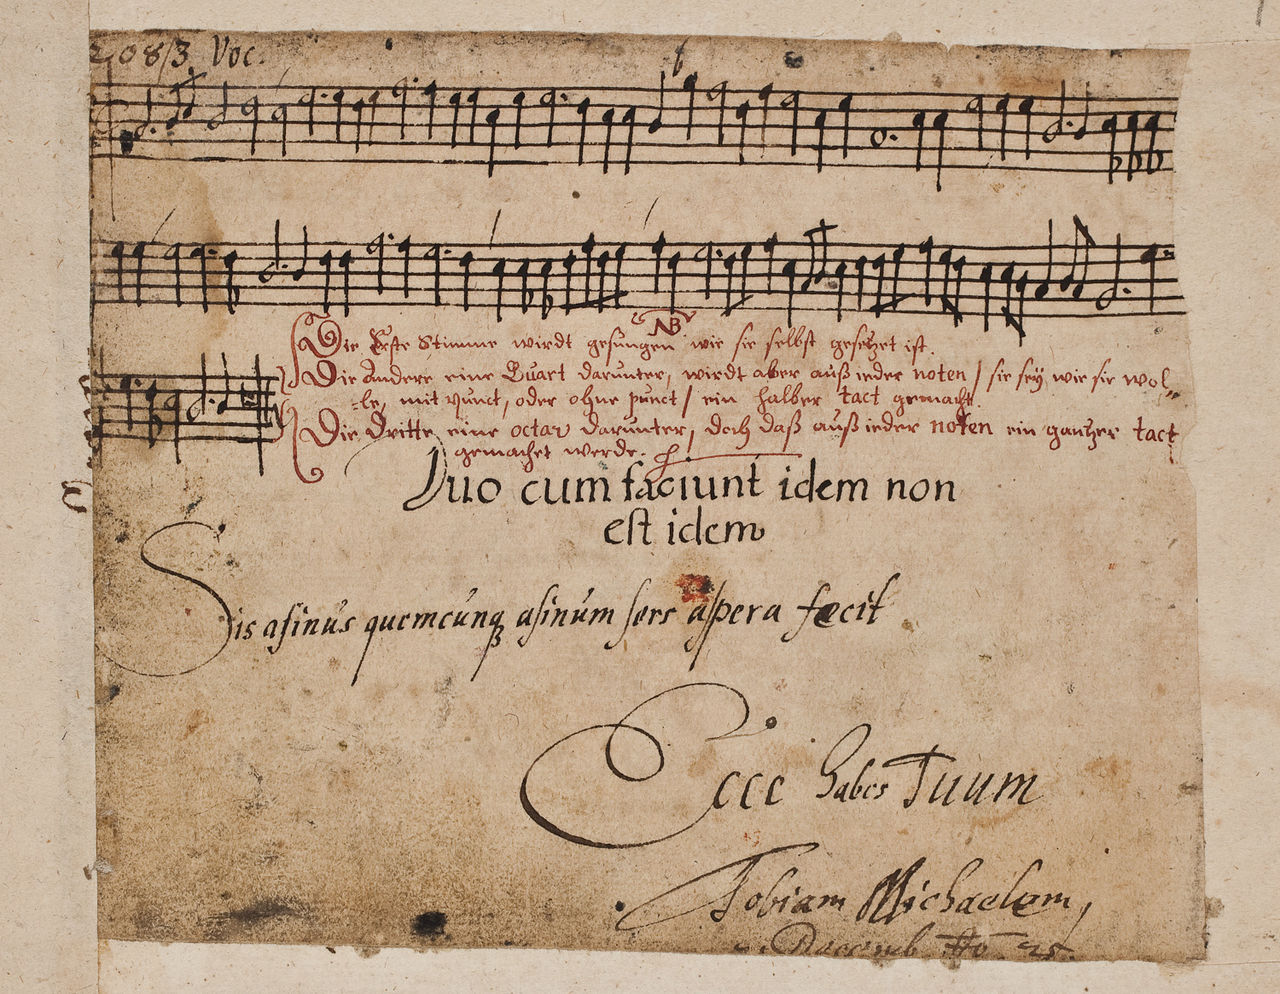 208/3 Voc.
NB
Die Erste Stimme wirdt gesungen wie sie selbst gesetzet ist.
Die Andere eine Quart darunter, wirdt aber auß ieder noten / sie sey wie sie wol-
le, mit punct, oder ohne punct / ein halber tact gemacht
Die Dritte eine octav darunter, doch daß auß ieder noten ein gantzer tact
gemachet werde.
Duo cum faciunt idem non
est idem
Sis asinus quemcunq asinum sors aspera fecit
Ecce habes Tuum
Tobiam Michaelem,
Decemb 25.